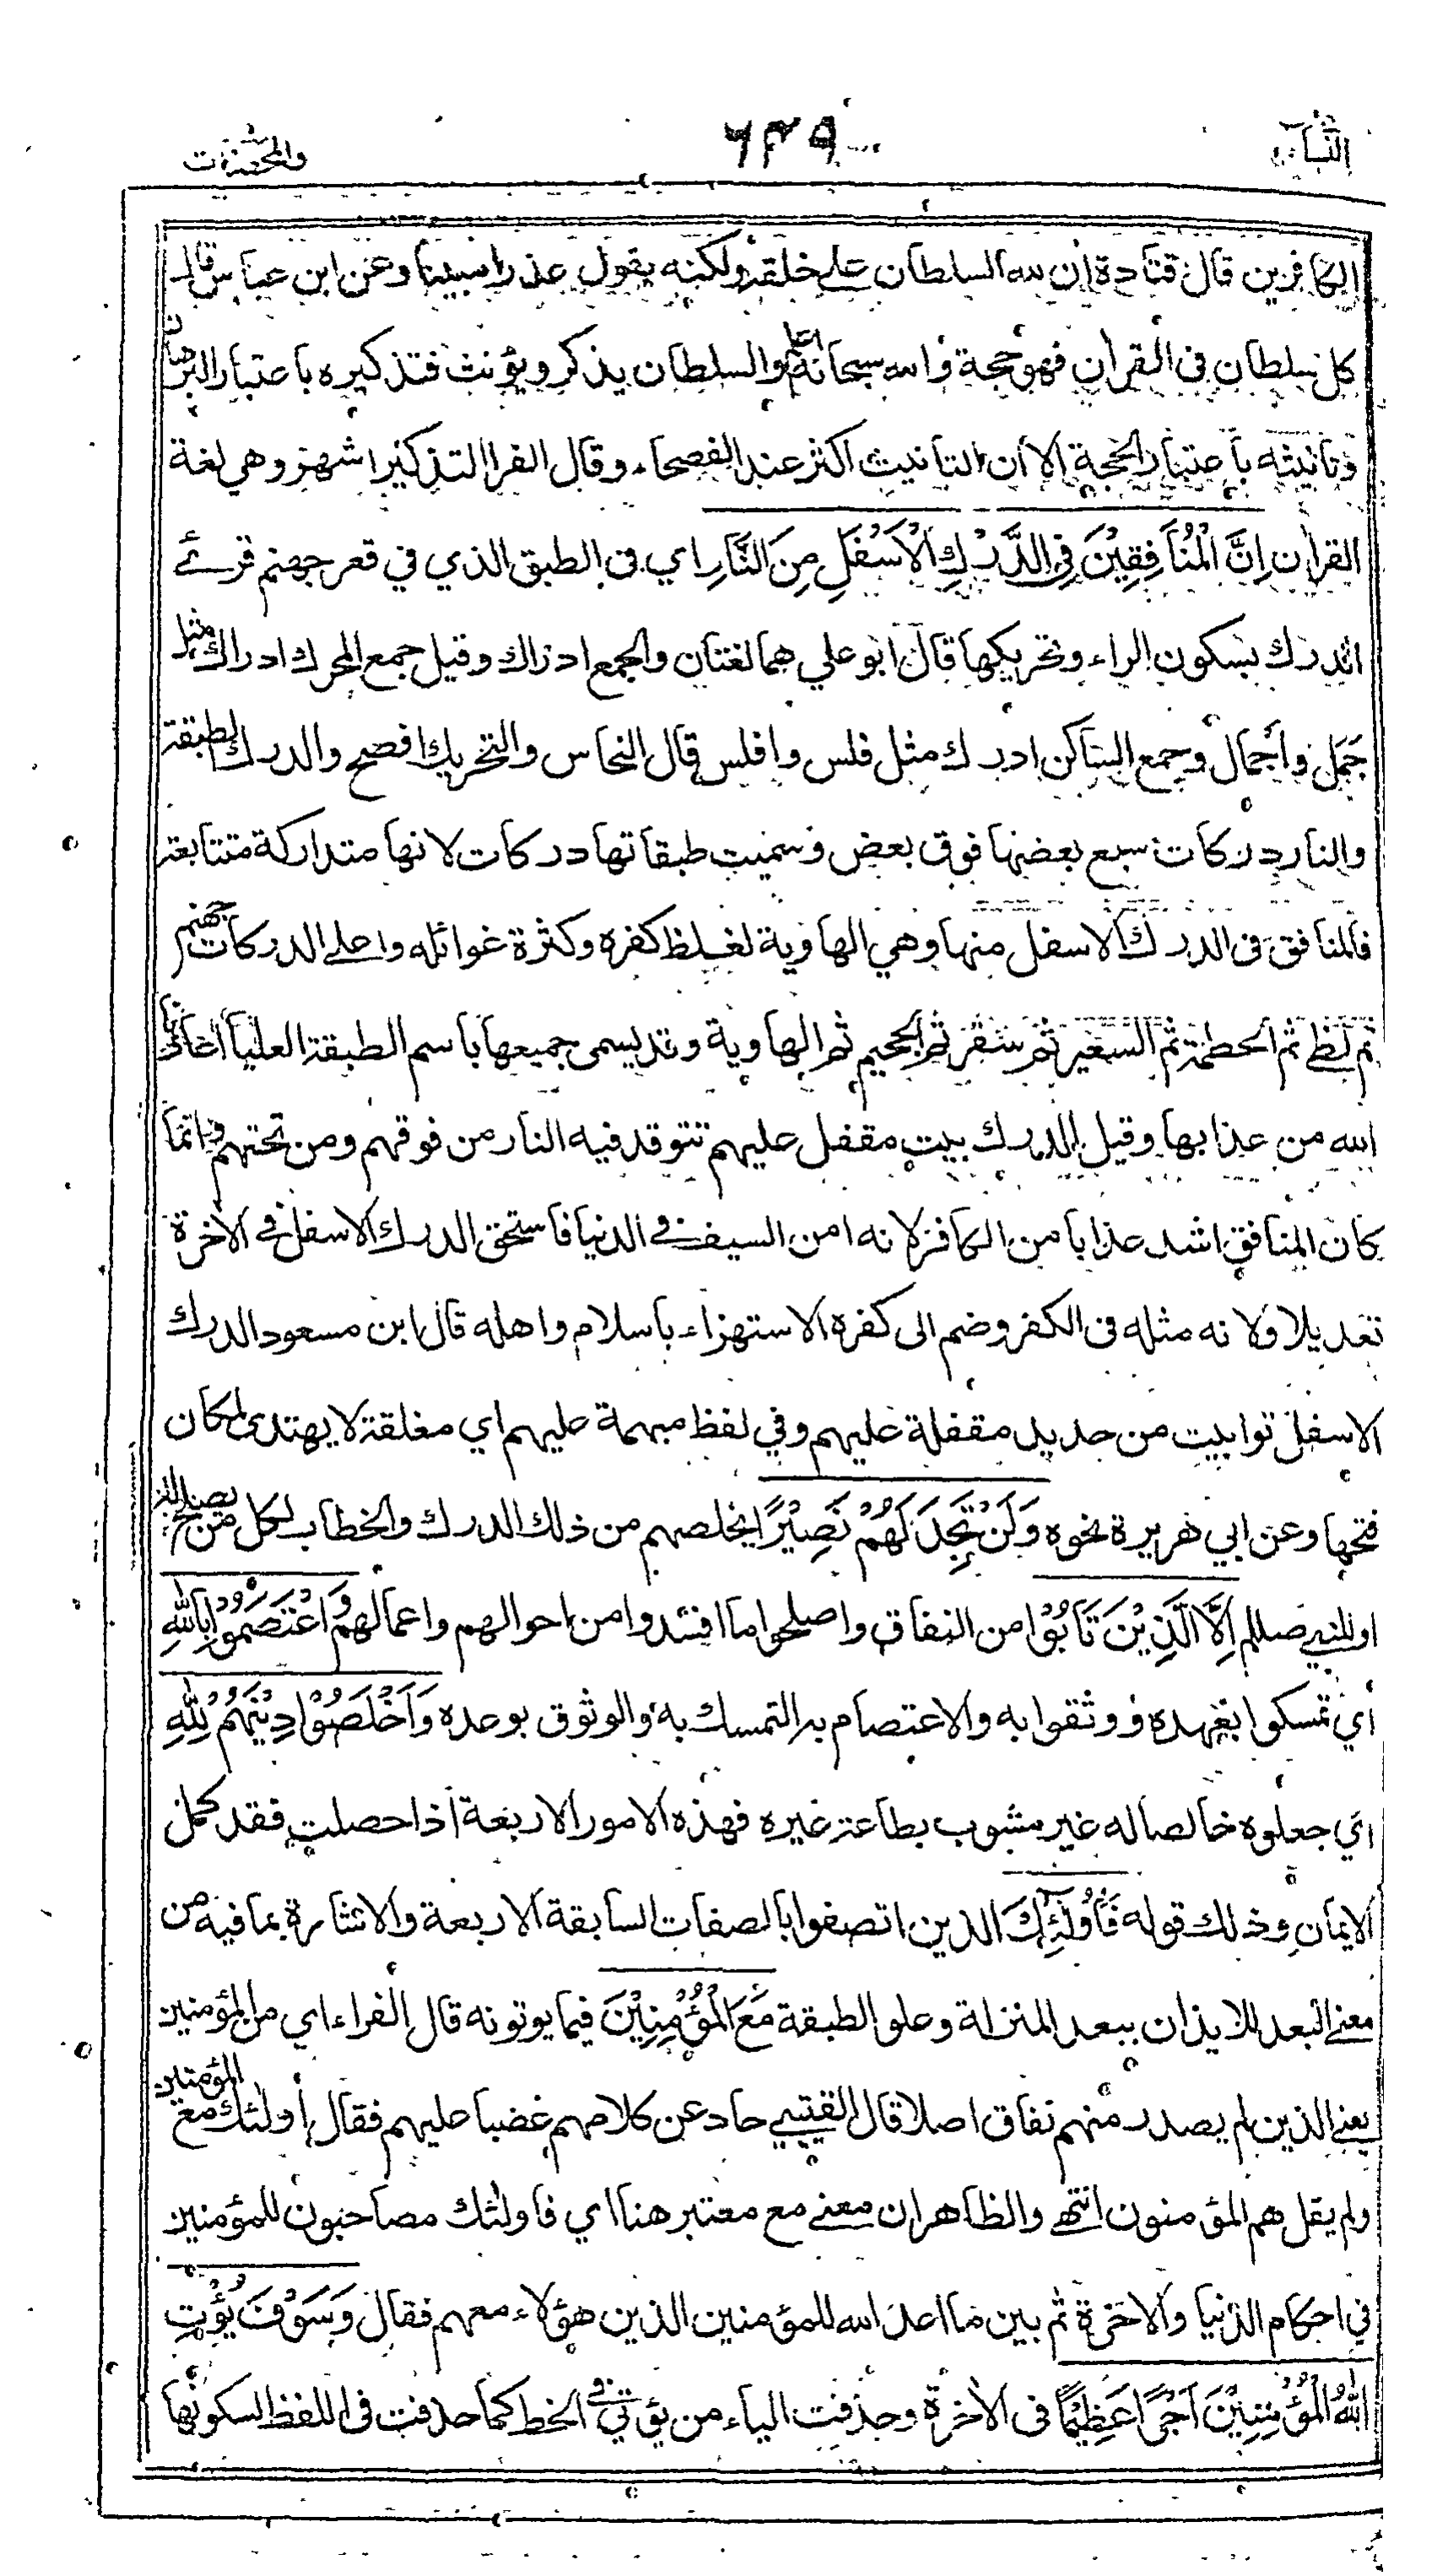 النساء ٦٢٩ والمحصنت
الكافرين قال قتادة ان لله السلطان على خلقه ولكنه يقول عذرا مبينا وعن ابن عباس قال
كل سلطان فى القرأن فهو حجة والله سبحانه اعلم والسلطان يذكر ويؤنث فتذكيره باعتبار البرهان
وتانيثه باعتبار الحجة الا ان التانيث اكثر عند الفصحاء وقال الفرا التذكير اشهر وهي لغة
القرأن اِنَّ الْمُنَافِقِيْنَ فِى الدَّرْكِ الْاَسْفَلِ مِنَ النَّارِ اي فى الطبق الذي في قعر جهنم قرئ
الدرك بسكون الراء وتحريكها قال ابو علي هما لغتان والجمع ادراك وقيل جمع المحرك ادراك مثل
جَمَل واَجمال وجمع الساكن ادرك مثل فلس وافلس قال النحاس والتحريك افصح والدرك الطبقة
والنار دركات سبع بعضها فوق بعض وسميت طبقاتها دركات لانها متداركة متتابعة
فالمنافق فى الدرك الاسفل منها وهي الهاوية لغلظ كفره وكثرة غوائله واعلى الدركات جهنم
ثم لظى ثم الحطمة ثم السعير ثم سقر ثم الجحيم ثم الهاوية وقد يسمى جميعها باسم الطبقة العليا اعاذنا
الله من عذابها وقيل الدرك بيت مقفل عليهم تتوقد فيه النار من فوقهم ومن تحتهم وانما
كان المنافق اشد عذابا من الكافر لانه امن السيف فى الدنيا فاستحق الدرك الاسفل فى الاخرة
تعديلا ولانه مثله فى الكفر وضم الى كفره الاستهزاء باسلام واهله قال ابن مسعود الدرك
الاسفل توابيت من حديد مقفلة عليهم وفي لفظ مبهمة عليهم اي مغلقة لا يهتدى لمكان
فتحها وعن ابي هريرة نحوه وَلَنْ تَجِدَ لَهُمْ نَصِيْرًا يخلصهم من ذلك الدرك والخطاب لكل من يصلح له
او للنبي صللم اِلَّا الَّذِيْنَ تَابُوْا من النفاق واصلحوا ما افسدوا من احوالهم واعمالهم وَاعْتَصَمُوْا بِاللّٰهِ
أي تمسكوا بعهده ووثقوا به والاعتصام به التمسك به والوثوق بوعده وَاَخْلَصُوْا دِيْنَهُمْ لِلّٰهِ
اي جعلوه خالصا له غير مشوب بطاعة غيره فهذه الامور الاربعة اذا حصلت فقد كمل
الايمان وذلك قوله فَاُولٰٓئِكَ الذين اتصفوا بالصفات السابقة الاربعة والاشارة بما فيه من
معنى البعد للايذان ببعد المنزلة وعلو الطبقة مَعَ الْمُؤْمِنِيْنَ فيما يوتونه قال الفراء اي من المؤمنين
يعنى الذين لم يصدر منهم نفاق اصلا قال القتيبي حاد عن كلامهم غضبا عليهم فقال أولئك مع المؤمنين
ولم يقل هم المؤمنون انتهى والظاهر ان معنى مع معتبر هنا اي فاولئك مصاحبون للمؤمنين
في احكام الدنيا والاخرة ثم بين ما اعد الله للمؤمنين الذين هؤلاء معهم فقال وَسَوْفَ يُؤْتِ
اللّٰهُ الْمُؤْمِنِيْنَ اَجْرًا عَظِيْمًا فى الاخرة وحذفت الياء من يؤتي في الخط كما حذفت فى اللفظ لسكونها